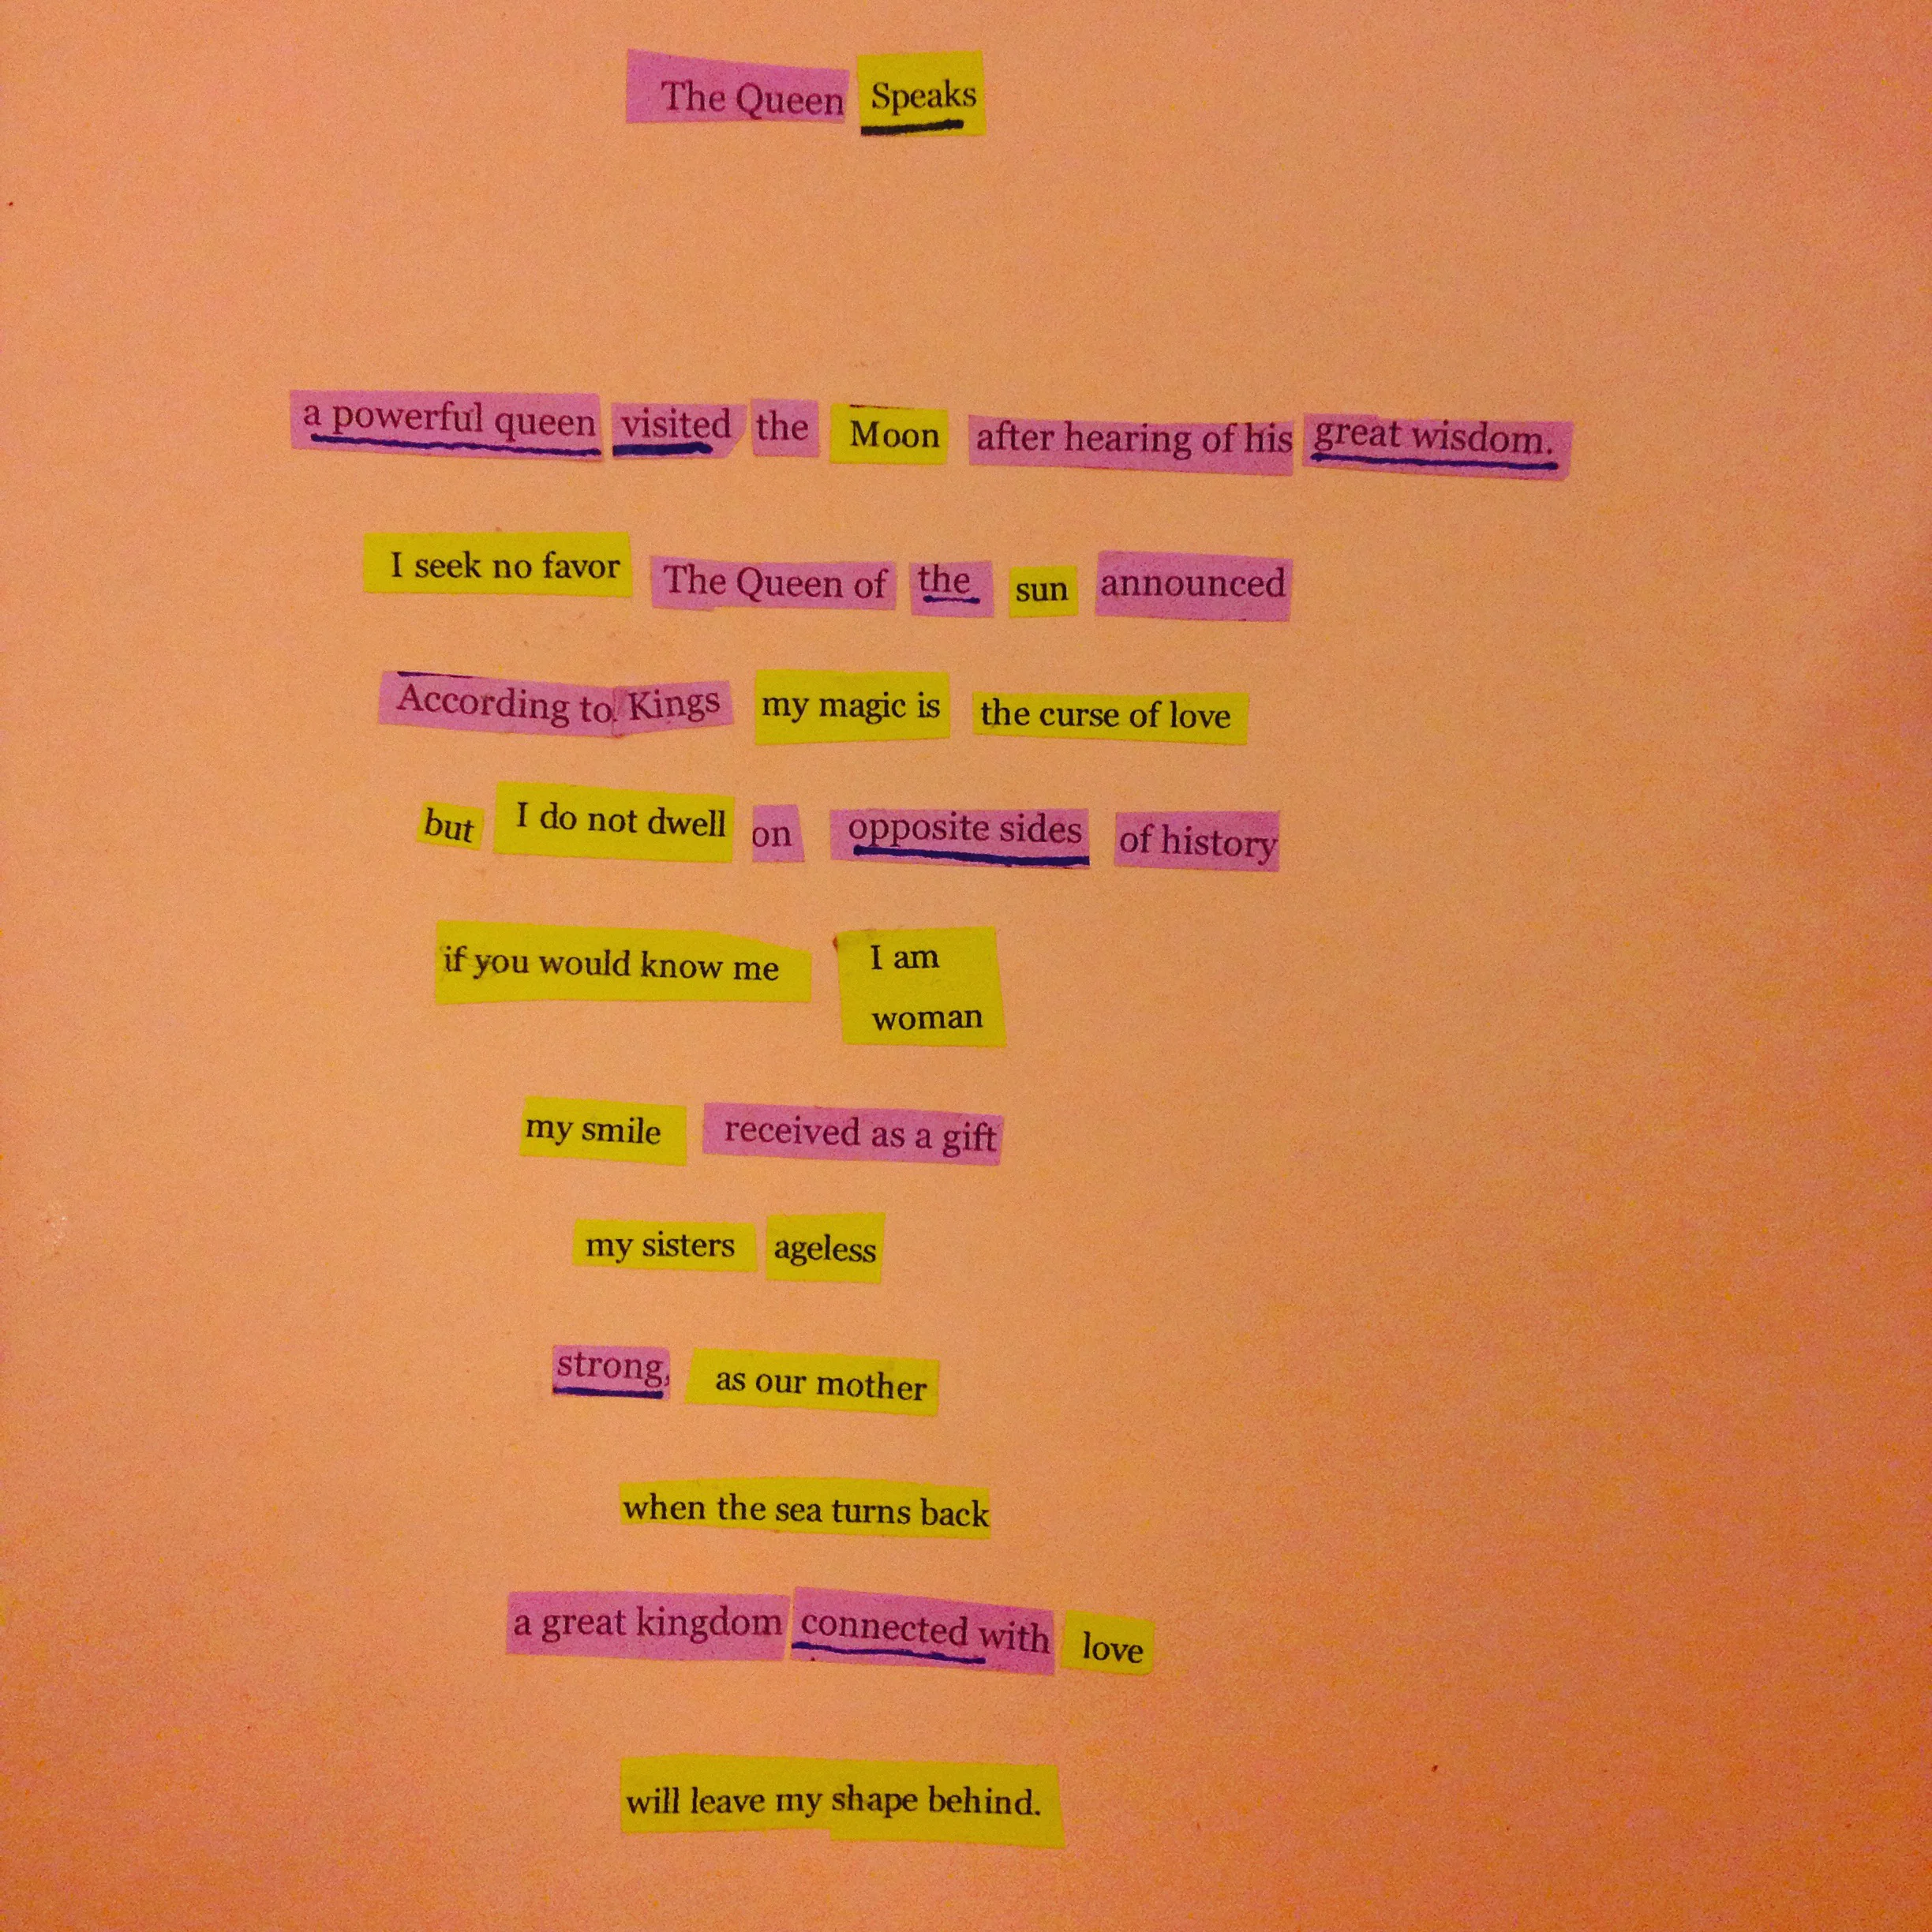 The Queen Speaks
a powerful queen visited the Moon after hearing of his great wisdom.
I seek no favor The Queen of the sun announced
According to Kings my magic is the curse of love
but I do not dwell on opposite sides of history
if you would know me I am
woman
my smile received as a gift
my sisters ageless
strong, as our mother
when the sea turns back
a great kingdom connected with love
will leave my shape behind.